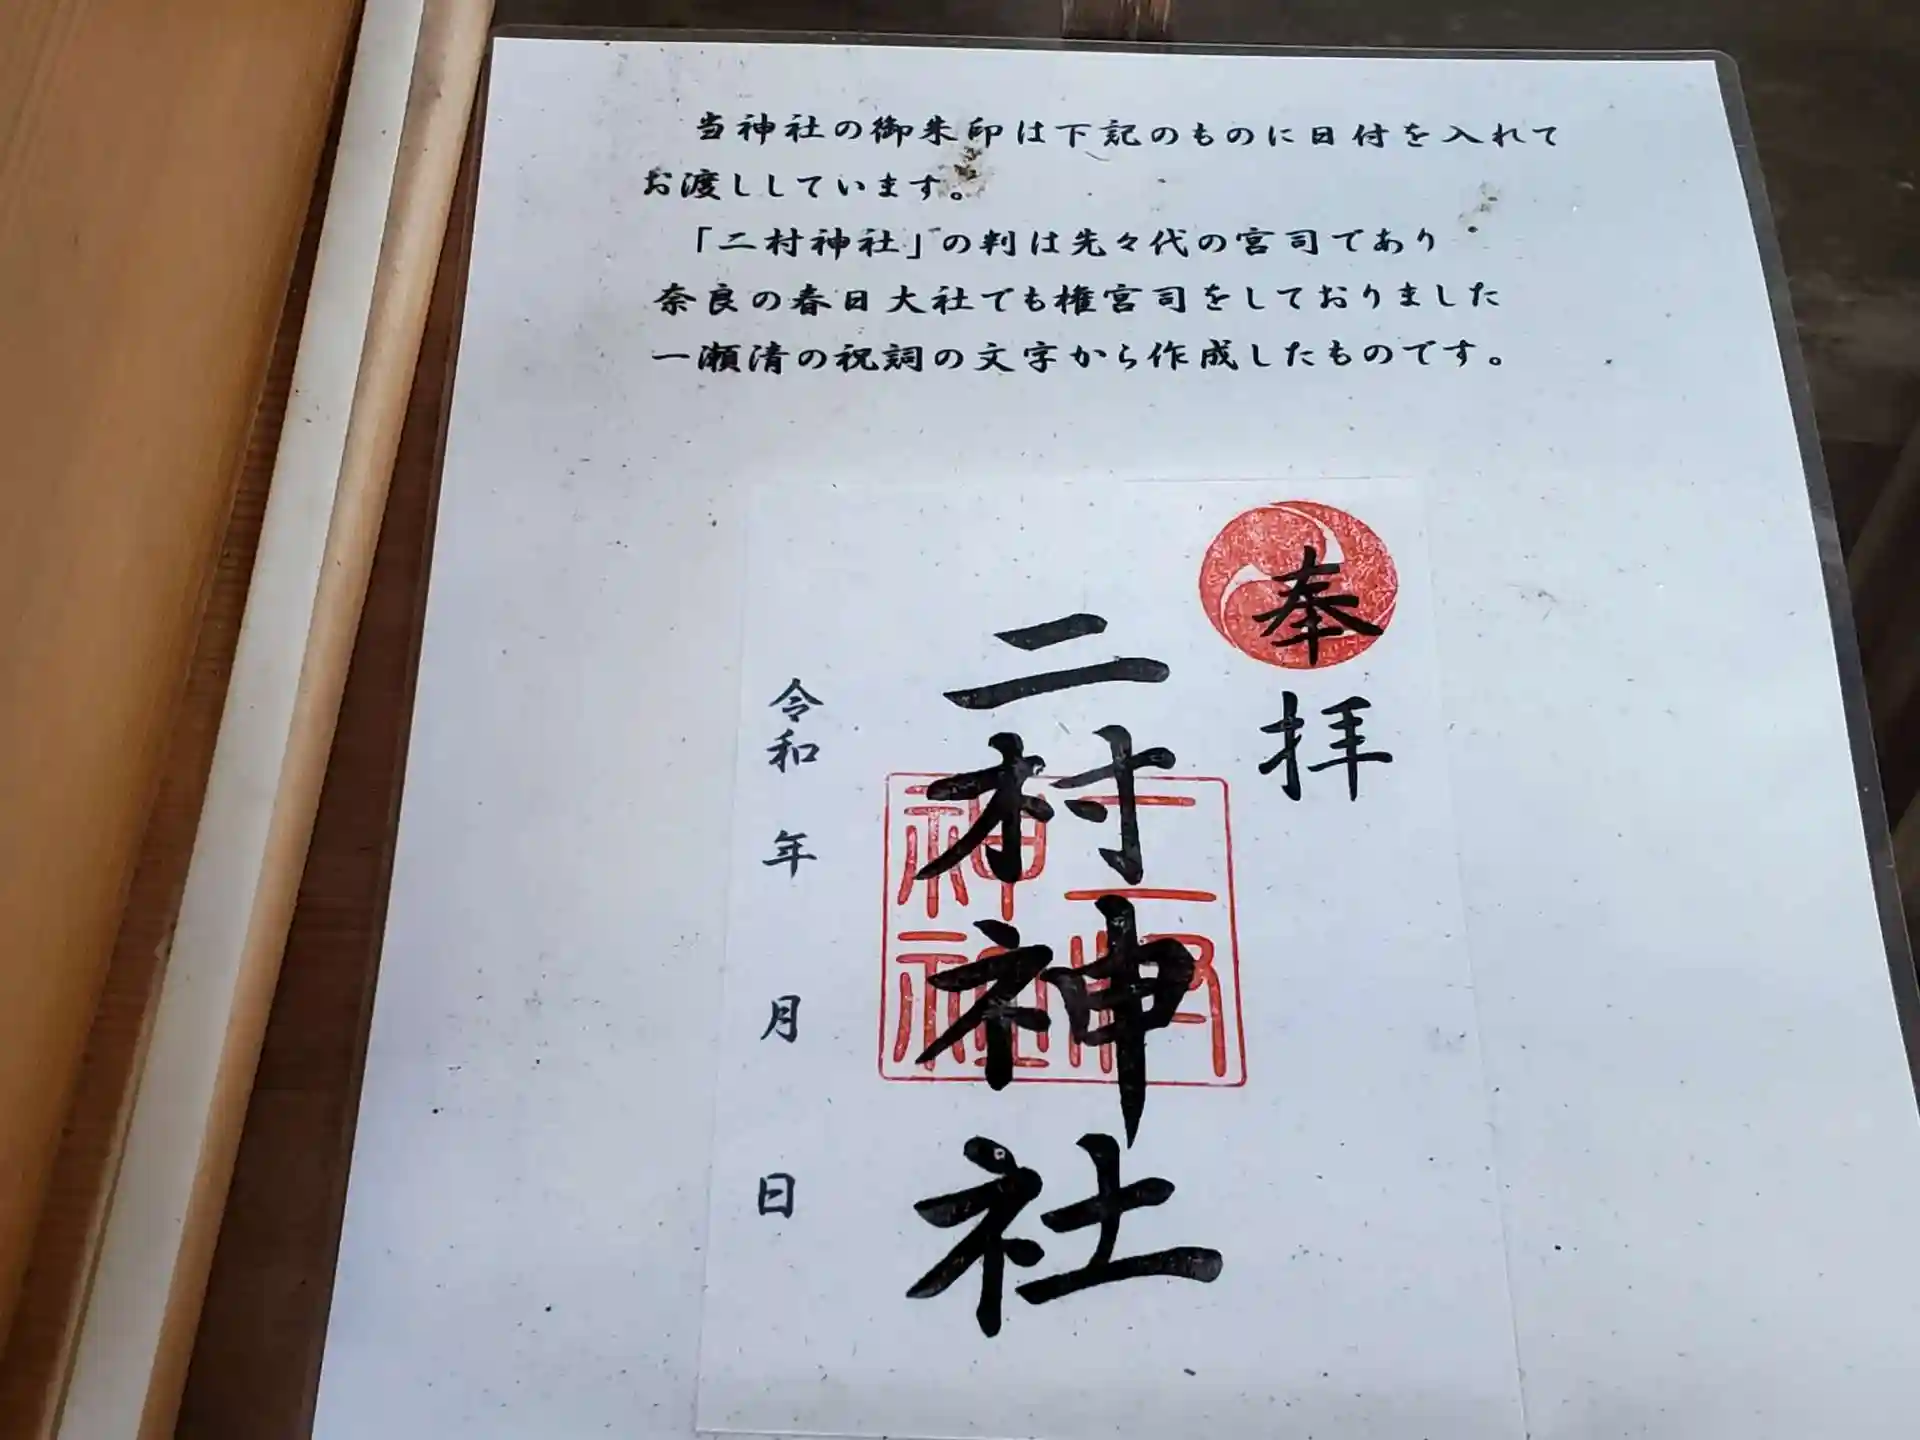 当神社の御朱印は下記のものに日付を入れて
お渡ししています。
「二村神社」の判は先々代の宮司であり
奈良の春日大社でも権宮司をしておりました
一瀬清の祝詞の文字から作成したものです。
奉拝
二村神社
二村
神社
令和 年 月 日